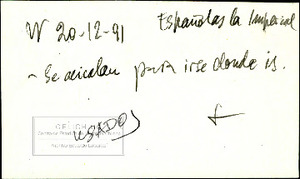 W 20-12-91 Españolas la Imperial
~ Se acicalan para irse donde is.
USADOS